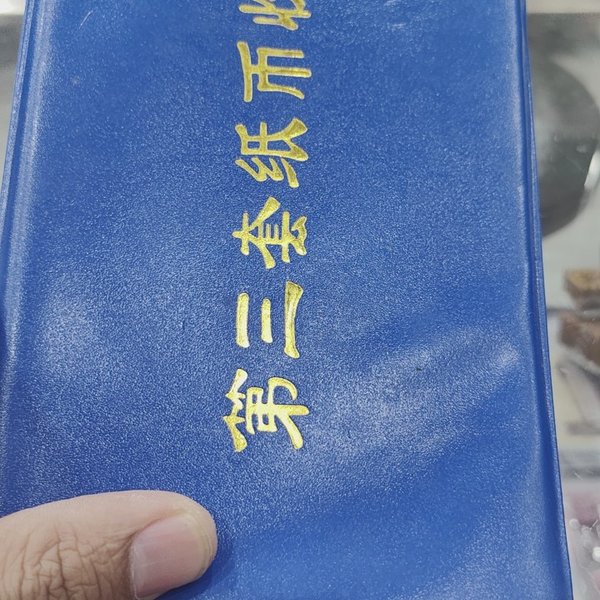 第三套纸币